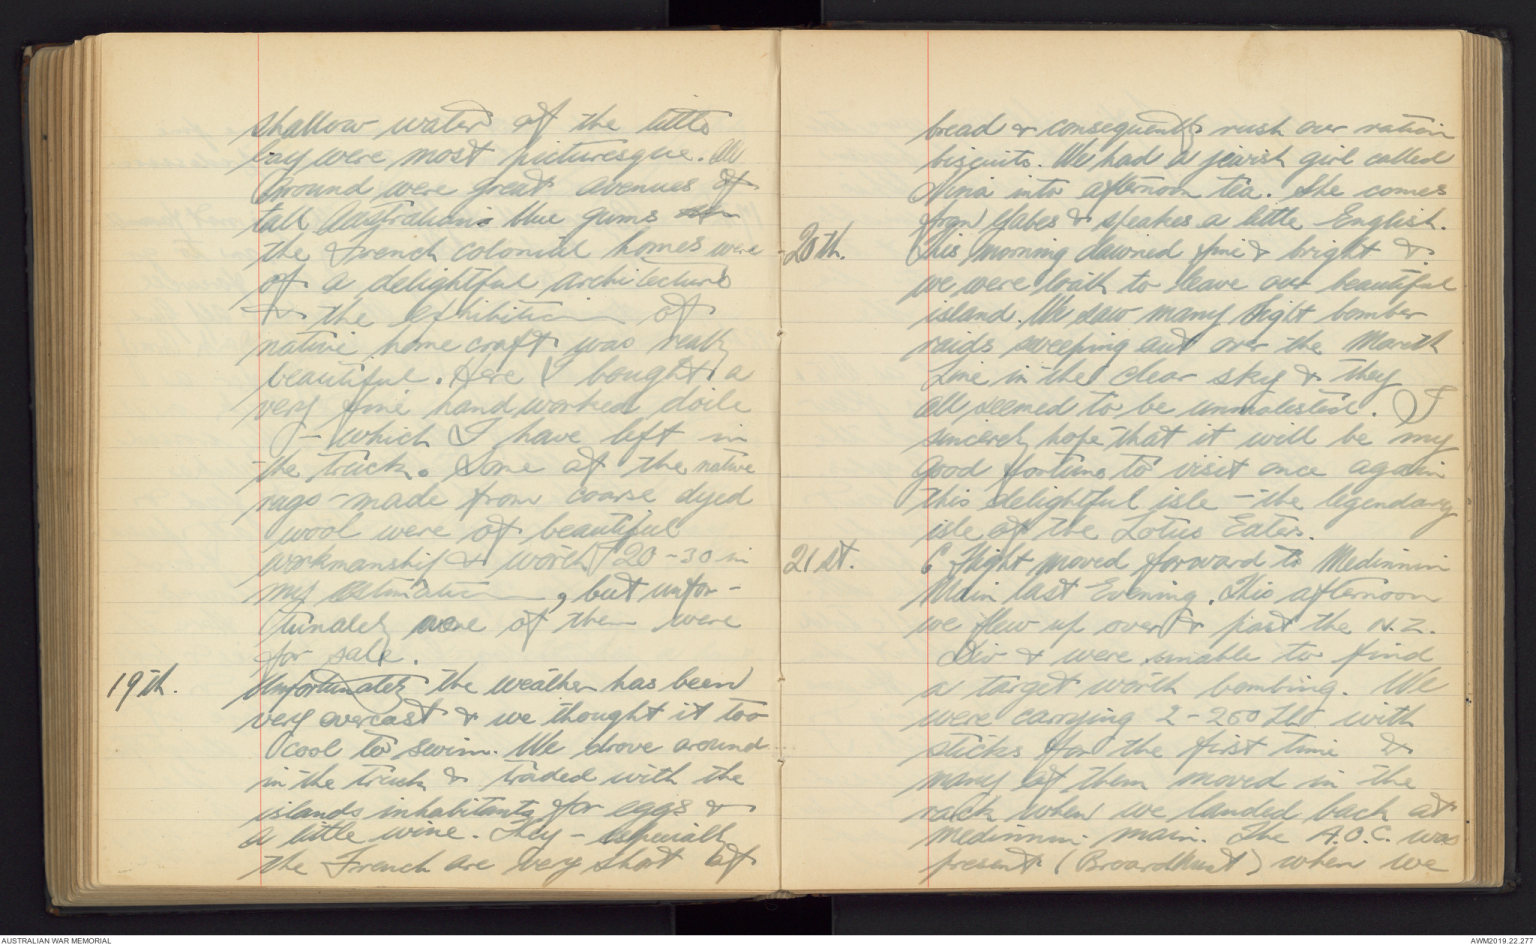 shallow water of the little
bay were most picturesque. All
around were great avenues of
tall Australian blue gums
the French colonial homes were
of a delightful architecture
& the exhibition of
native home craft was really
beautiful. Here I bought a
very fine hand worked doile
- which I have left in
the truck. Some of the native
rugs - made from coarse dyed
wool were of beautiful
workmanship & worth £20-30 in
my estimation, but unfor-
tunately none of them were
for sale.
19th. Unfortunately the weather has been
very overcast & we thought it too
cool to swim. We drove around
in the truck & traded with the
islands inhabitants for eggs &
a little wine. They - especially
the French are very short of
bread & consequently rush our ration
biscuits. We had a jewish girl called
Ninia into afternoon tea. She comes
from Gabes & speakes a little English.
20th. This morning dawned fine & bright &
we were loath to leave our beautiful
island. We saw many light bomber
raids sweeping out over the Mareth
Line in the clear sky & they
all seemed to be unmolested. I
sincerely hope that it will be my
good fortune to visit once again
this delightful isle - the legendary
isle of the Lotus Eaters.
21st. C Flight moved forward to Medinnin
Main last Evening. This afternoon
we flew up over & past the N.Z.
Div & were unable to find
a target worth bombing. We
were carrying 2-250 Lbs with
sticks for the first time &
many of them moved in the
rack when we landed back at
Medinnin main. The A.O.C. was
present (Broardhurst) when we
AUSTRALIAN WAR MEMORIAL
AWM2019.22.277